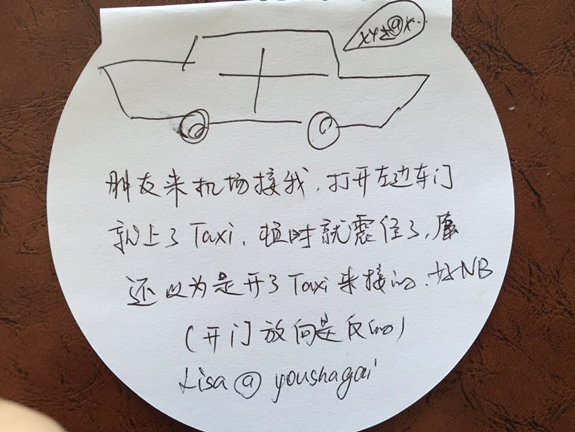 朋友来机场接我，打开左边车门
就上了Taxi，顿时就震住了，
还以为是开了Taxi来接的，NB
（开门放向是反的）
Lisa @ youshagai